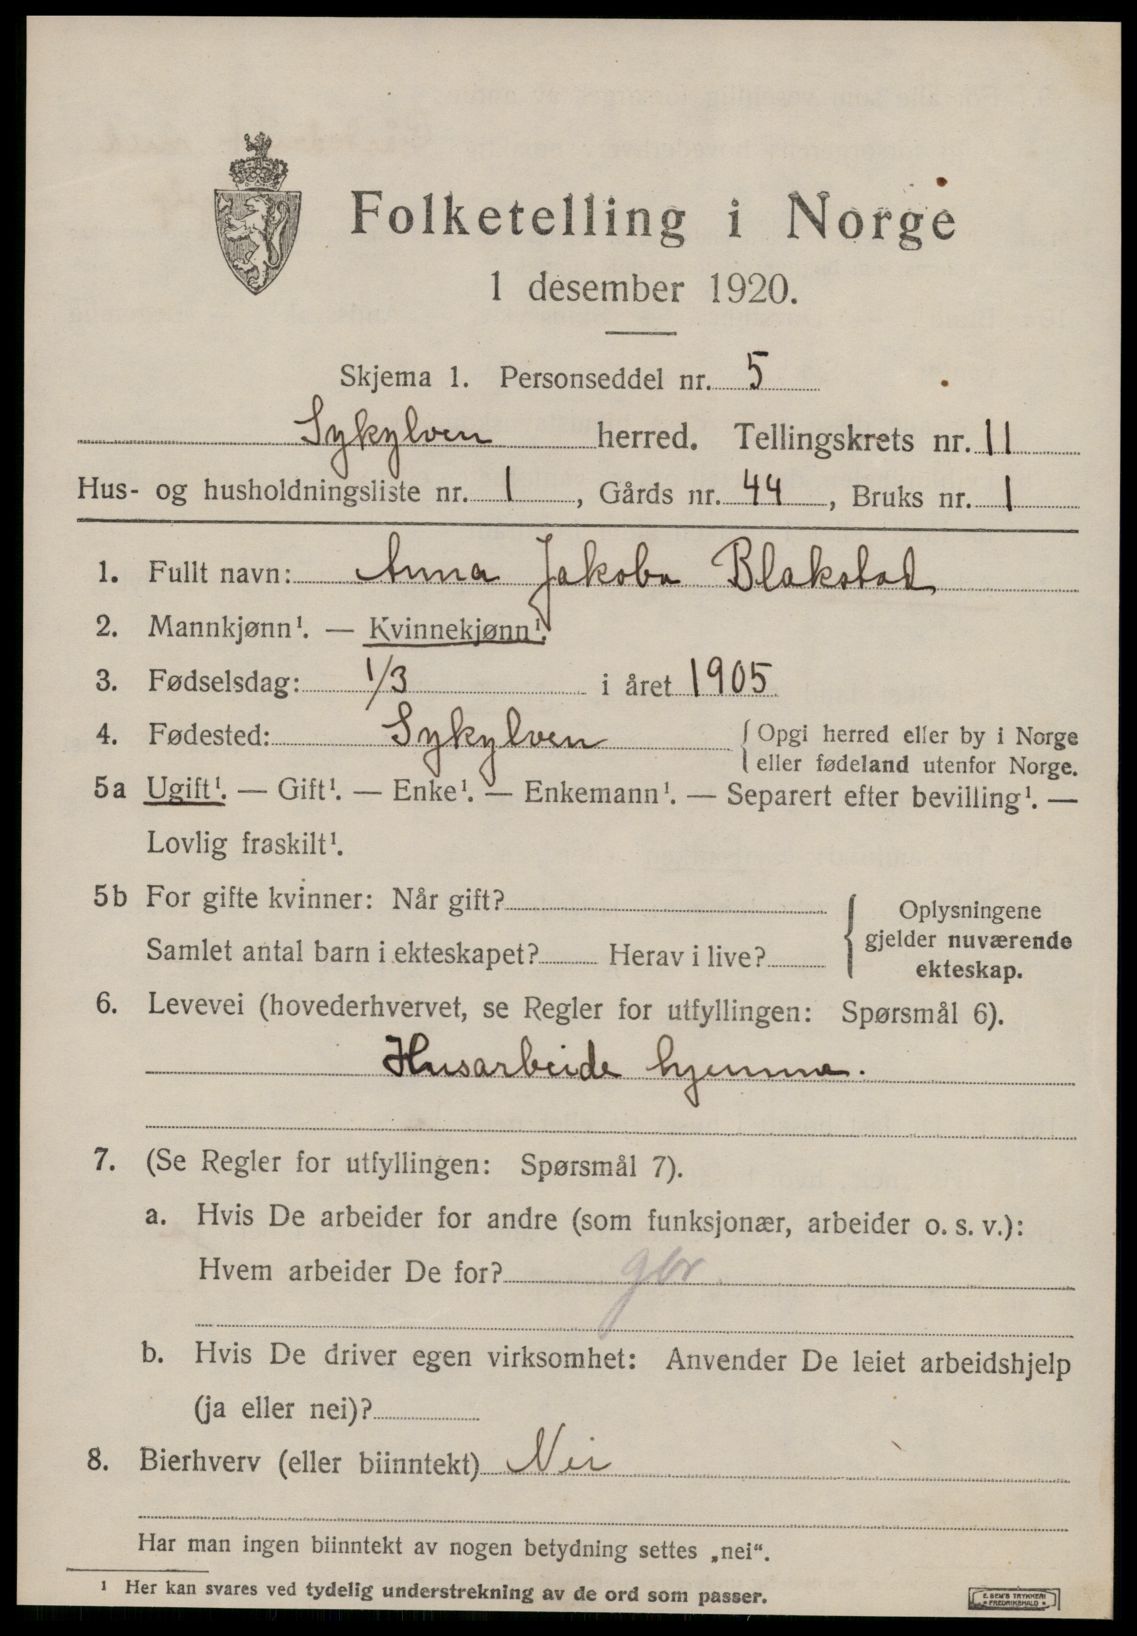 Folketelling i Norge
1 desember 1920.
Skjema 1. Personseddel nr. 5
Sykylven herred. Tellingskrets nr. 11
Hus- og husholdningsliste nr. 1, Gårds nr. 44, Bruks nr. 1
1. Fullt navn: Anna Jakoba Blakstad
2. Mannkjønn¹. — Kvinnekjønn¹.
3. Fødselsdag: 1/3 i året 1905
4. Fødested: Sykylven { Opgi herred eller by i Norge
eller fødeland utenfor Norge.
5a Ugift¹. — Gift¹. — Enke¹. — Enkemann¹. — Separert efter bevilling¹. —
Lovlig fraskilt¹.
5b For gifte kvinner: Når gift?
Samlet antal barn i ekteskapet? Herav i live?
Oplysningene
gjelder nuværende
ekteskap.
6. Levevei (hovederhvervet, se Regler for utfyllingen: Spørsmål 6).
Husarbeide hjemme.
7. (Se Regler for utfyllingen: Spørsmål 7).
a. Hvis De arbeider for andre (som funksjonær, arbeider o. s. v.):
Hvem arbeider De for?
b. Hvis De driver egen virksomhet: Anvender De leiet arbeidshjelp
(ja eller nei)?
8. Bierhverv (eller biinntekt) Nei
Har man ingen biinntekt av nogen betydning settes „nei“.
¹ Her kan svares ved tydelig understrekning av de ord som passer.